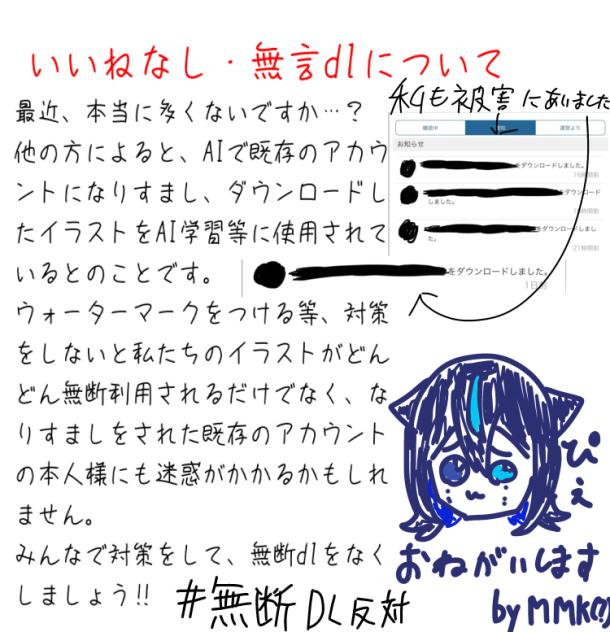 いいねなし・無言dlについて
私も被害にあいました
最近、本当に多くないですか…？
他の方によると、AIで既存のアカウ
ントになりすまし、ダウンロードし
たイラストをAI学習等に使用されて
いるとのことです。
ウォーターマークをつける等、対策
をしないと私たちのイラストがどん
どん無断利用されるだけでなく、な
りすましをされた既存のアカウント
の本人様にも迷惑がかかるかもしれ
ません。
みんなで対策をして、無断dlをなく
しましょう!!
#無断DL反対
運営より
お知らせ
をダウンロードしました。
16時間前
をダウンロード
しました。
をダウンロードしまし
た。
21時間前
をダウンロードしました。
1日前
ぴえ
おねがいします
by MMK(?)